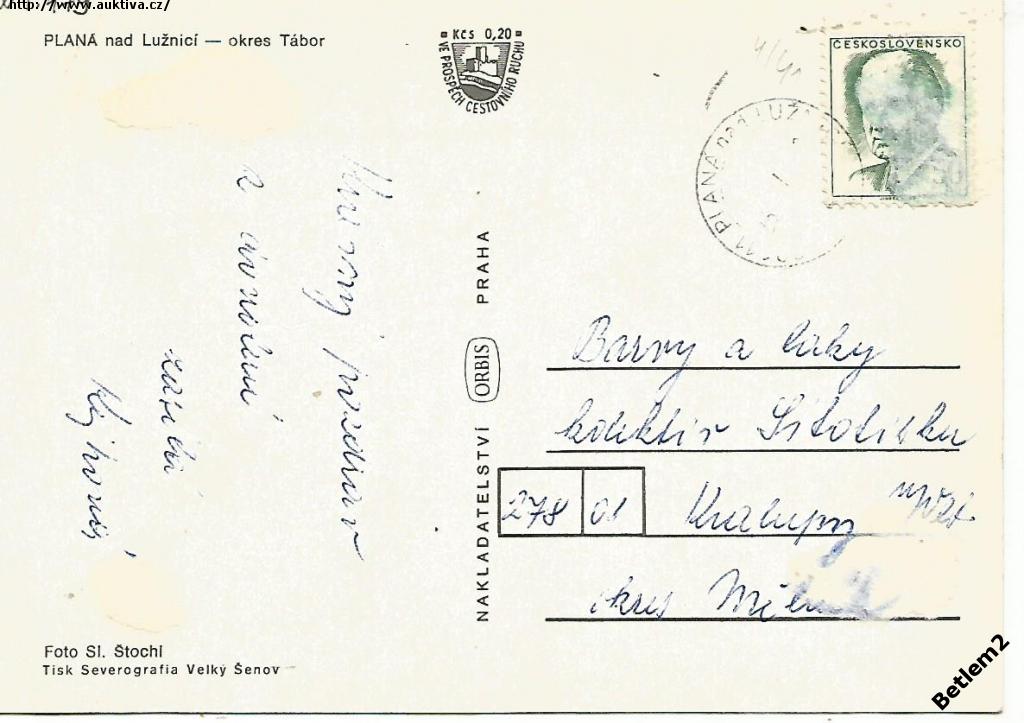 http://www.auktiva.cz/
PLANÁ nad Lužnicí — okres Tábor
Kčs 0,20
VE PROSPĚCH CESTOVNÍHO RUCHU
ČESKOSLOVENSKO
PLANÁ nad LUŽ
pozdrav
z
zasílá
NAKLADATELSTVÍ ORBIS PRAHA
Barvy a laky
kolektiv Sítotisku
278 01 Kralupy n/Vlt
okres Mělník
Foto Sl. Štochl
Tisk Severografia Velký Šenov
Betlem2